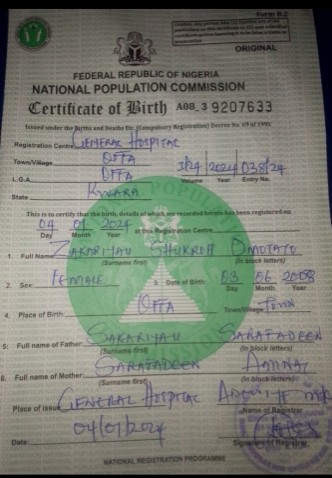 Form B.2
ORIGINAL
FEDERAL REPUBLIC OF NIGERIA
NATIONAL POPULATION COMMISSION
Certificate of Birth A08_3 9207633
Issued under the Births and Deaths Etc. (Compulsory Registration) Decree No. 69 of 1992
Registration Centre GENERAL HOSPITAL
Town/Village OFFA
L.G.A. OFFA 1/24 2024 038/24
Volume Year Entry No.
State KWARA
This is to certify that the birth, details of which are recorded herein has been registered on
04 01 2024 at this Registration Centre
Day Month Year
1. Full Name ZAKARIYAU SHUKROH OMOTAYO
(Surname first) (in block letters)
2. Sex: FEMALE 3. Date of Birth: 03 06 2008
Day Month Year
4. Place of Birth: OFFA Town/Village TOWN
5: Full name of Father: ZAKARIYAU SARAFADEEN
(Surname first) (in block letters)
6. Full name of Mother: SARAFADEEN AMINAT
(Surname first) (in block letters)
Place of issue GENERAL HOSPITAL
Name of Registrar
Date: 04/01/2024
Signature of Registrar
NATIONAL REGISTRATION PROGRAMME